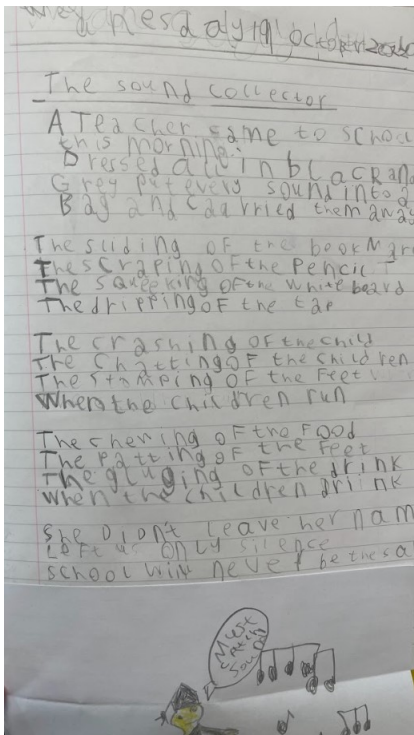 Wednesday 19 october
The sound collector
A Teacher came to school
this morning.
Dressed all in black and
Grey put every sound into a
Bag and caarried them away
The sliding of the bookmar
The scraping of the pencil
The squeeking of the white board
The dripping of the tap
The crashing of the child
The chatting of the children
The stamping of the feet
When the children run
The chewing of the food
The patting of the feet
The gluging of the drink
when the children drink
She didn't leave her nam
Left us only silence
school will never be the sa
Must
catch
Sound